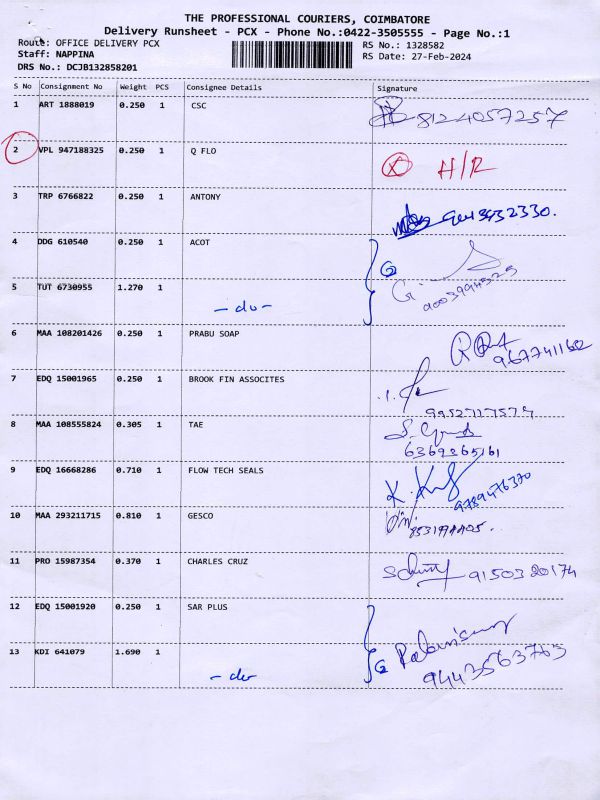 THE PROFESSIONAL COURIERS, COIMBATORE
Delivery Runsheet - PCX - Phone No.:0422-3505555 - Page No.:1
Route: OFFICE DELIVERY PCX RS No.: 1328582
Staff: NAPPINA RS Date: 27-Feb-2024
DRS No.: DCJB132858201
S No Consignment No Weight PCS Consignee Details Signature
1 ART 1888019 0.250 1 CSC 8124057257
2 VPL 947188325 0.250 1 Q FLO X H/R
3 TRP 6766822 0.250 1 ANTONY
4 DDG 610540 0.250 1 ACOT
5 TUT 6730955 1.270 1 - do -
6 MAA 108201426 0.250 1 PRABU SOAP
7 EDQ 15001965 0.250 1 BROOK FIN ASSOCITES
9952717574
8 MAA 108555824 0.305 1 TAE
6369265161
9 EDQ 16668286 0.710 1 FLOW TECH SEALS
9789476370
10 MAA 293211715 0.810 1 GESCO
11 PRO 15987354 0.370 1 CHARLES CRUZ 9150320174
12 EDQ 15001920 0.250 1 SAR PLUS
13 KDI 641079 1.690 1 - do -
9443563763